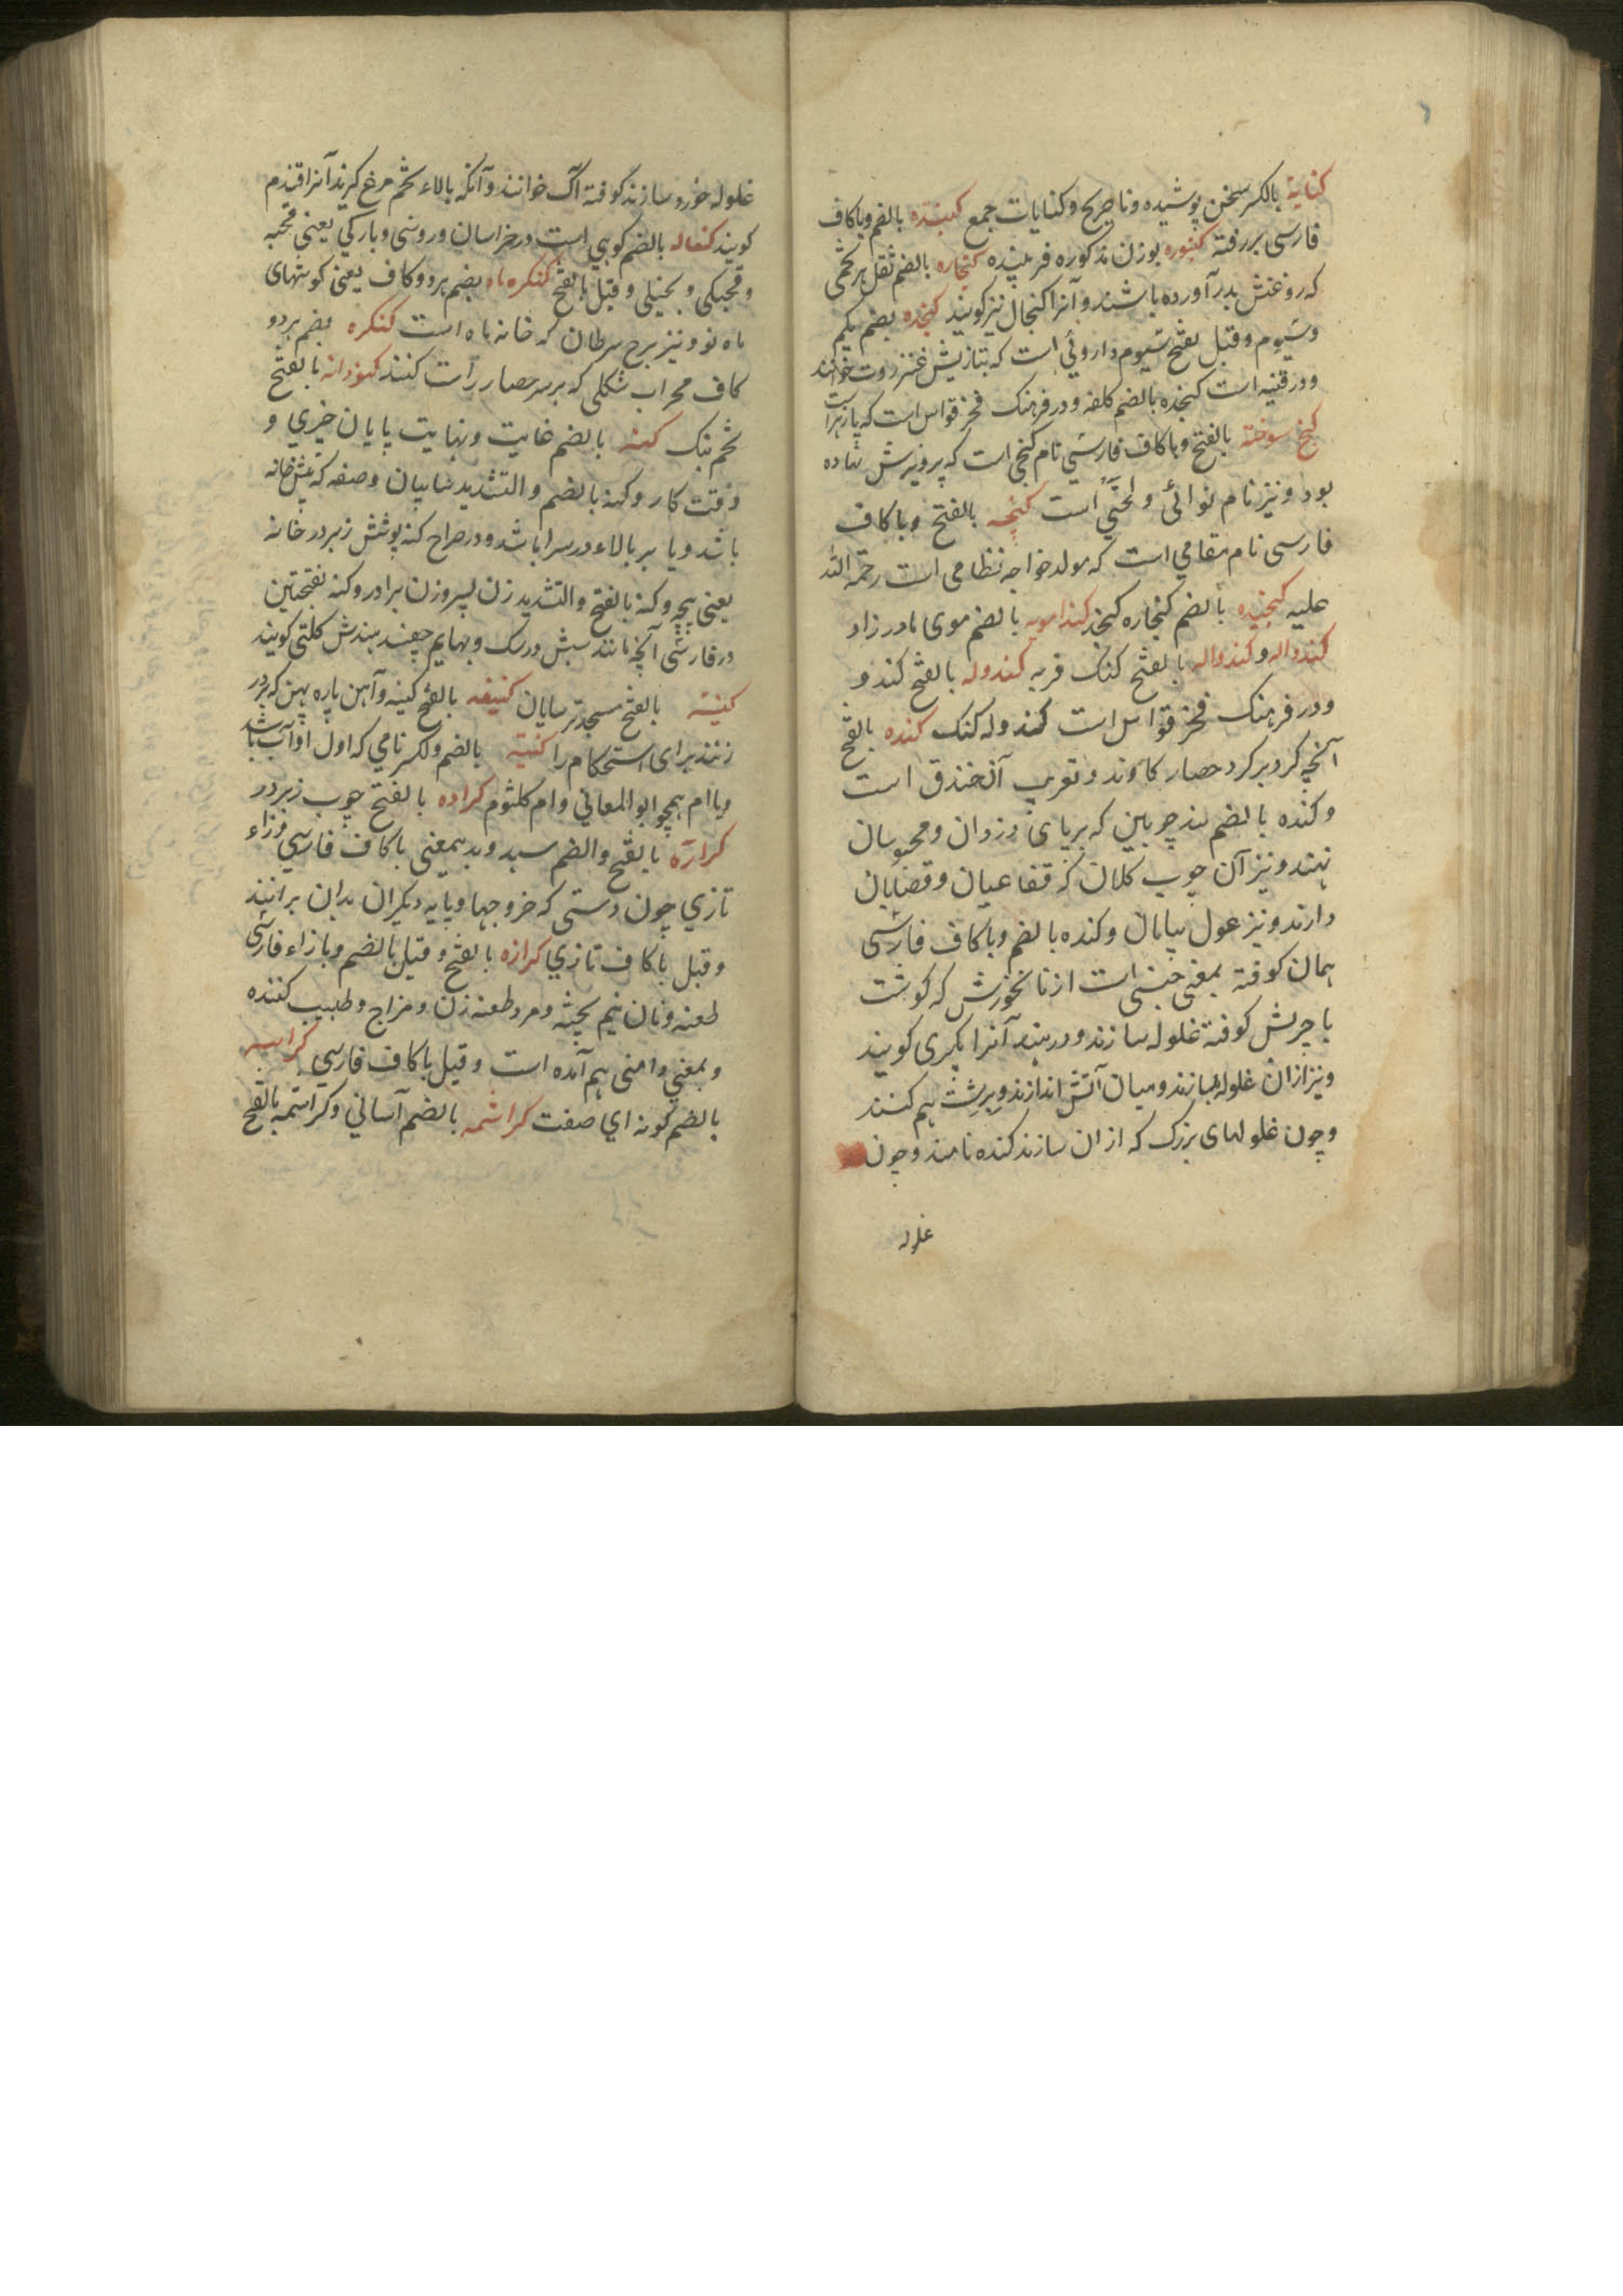 کنایة بالکسر سخن پوشیده و ناصریح و کنایات جمع کبنده بالضم و باکاف
فارسی بر رفته کنبوره بوزن مذکوره فریبنده کنجاره بالضم ثقل هر تخمی
که روغنش بدر آورده باشند و آنرا کنجال نیز کویند کنجده بضم یکم
وسیوم و قیل بفتح سیوم داروئی است که بتازیش عنزروت خوانند
و در قنیه است کنجده بالضم کلفه و در فرهنک فخر قواس است که پازهرا ست
کنج سوخته بالفتح و باکاف فارسی نام کنجی است که پرویزش نهاده
بود و نیز نام نوائی و لحنی است کنجه بالفتح و باکاف
فارسی نام مقامی است که مولد خواجه نظامی است رحمة الله
علیه کنجیده بالضم کنجاره کنجد کندامویه بالضم موی مادرزاد
کندواله و کندواله بالفتح کنک فربه کندوله بالفتح کندو
و در فرهنک فخر قواس است کندوله کنک کنده بالفتح
آنچه کرد بر کرد حصار کاوند و تعریب آن خندق است
و کنده بالضم بند چوبین که بر پای دزدان و محبوسان
نهند و نیز آن چوب کلان که فقاعیان و قصابان
دارند و نیز غول بیابان و کنده بالضم و باکاف فارسی
همان کوفته بمعنی جنسی است از نانخورش که کوشت
با چربش کوفته غلوله سازند و در هند آنرا بکری کویند
و نیز ازان غلولها سازند و میان آتش اندازند و برشت هم کنند
و چون غلولهای بزرک که ازان سازند کنده نامند و چون
غلوله
غلوله خورد سازند کوفته آک خوانند و آنکه بالاء تخم مرغ کیرند آنرا قندم
کویند کنعاله بالضم کوهی است در خراسان و روسی و بارکی یعنی قحبه
و قحبکی و بخیلی و قیل بالفتح کنکره ماه بضم هر دو کاف یعنی کوشهای
ماه نو و نیز برج سرطان که خانه ماه است کنکره بضم هر دو
کاف محراب شکلی که بر سر حصار راست کنند کنودانه بالفتح
تخم بنک کنه بالضم غایت و نهایت پایان چیزی و
وقت کار و کنه بالضم والتشدید سایبان و صفه که پیش خانه
باشد و یا بر بالاء در سرا باشد و در صراح کنه پوشش زبر در خانه
یعنی پچه و کنه بالفتح والتشدید زن پسر و زن برادر و کنه بفتحتین
در فارسی آنچه مانند سپش در سک و بهایم چفسد هندش کلتی کویند
کنیسه بالفتح مسجد ترسایان کنیفه بالفتح کینه و آهن پاره پهن که بر در
زنند برای استحکام را کنیة بالضم والکسر نامی که اول او اب باشد
و یا ام همچو ابو المعانی و ام کلثوم کراده بالفتح چوب زبر در
کراره بالفتح والضم سبد و بدیمعنی باکاف فارسی و زاء
تازی چون دستی که خروجها و پایه دیکران بدان برانند
و قیل باکاف تازی کرازه بالفتح و قیل بالضم و بازاء فارسی
طعنه و نان نیم پخته و مرد طعنه زن و مزاح و طبیب کننده
و بمعنی دامنی هم آمده است و قیل باکاف فارسی کراسه
بالضم کونه ای صفت کراشمه بالضم آسانی و کراشمه بالفتح